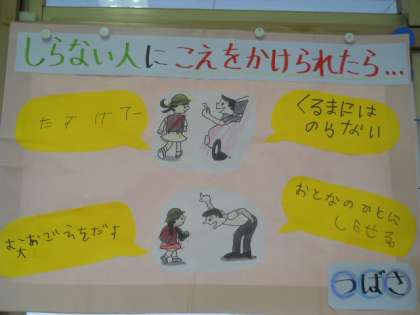 しらない人にこえをかけられたら...
たすけてー
くるまには
のらない
大おごえをだす
おとなのひとに
しらせる
つばさ